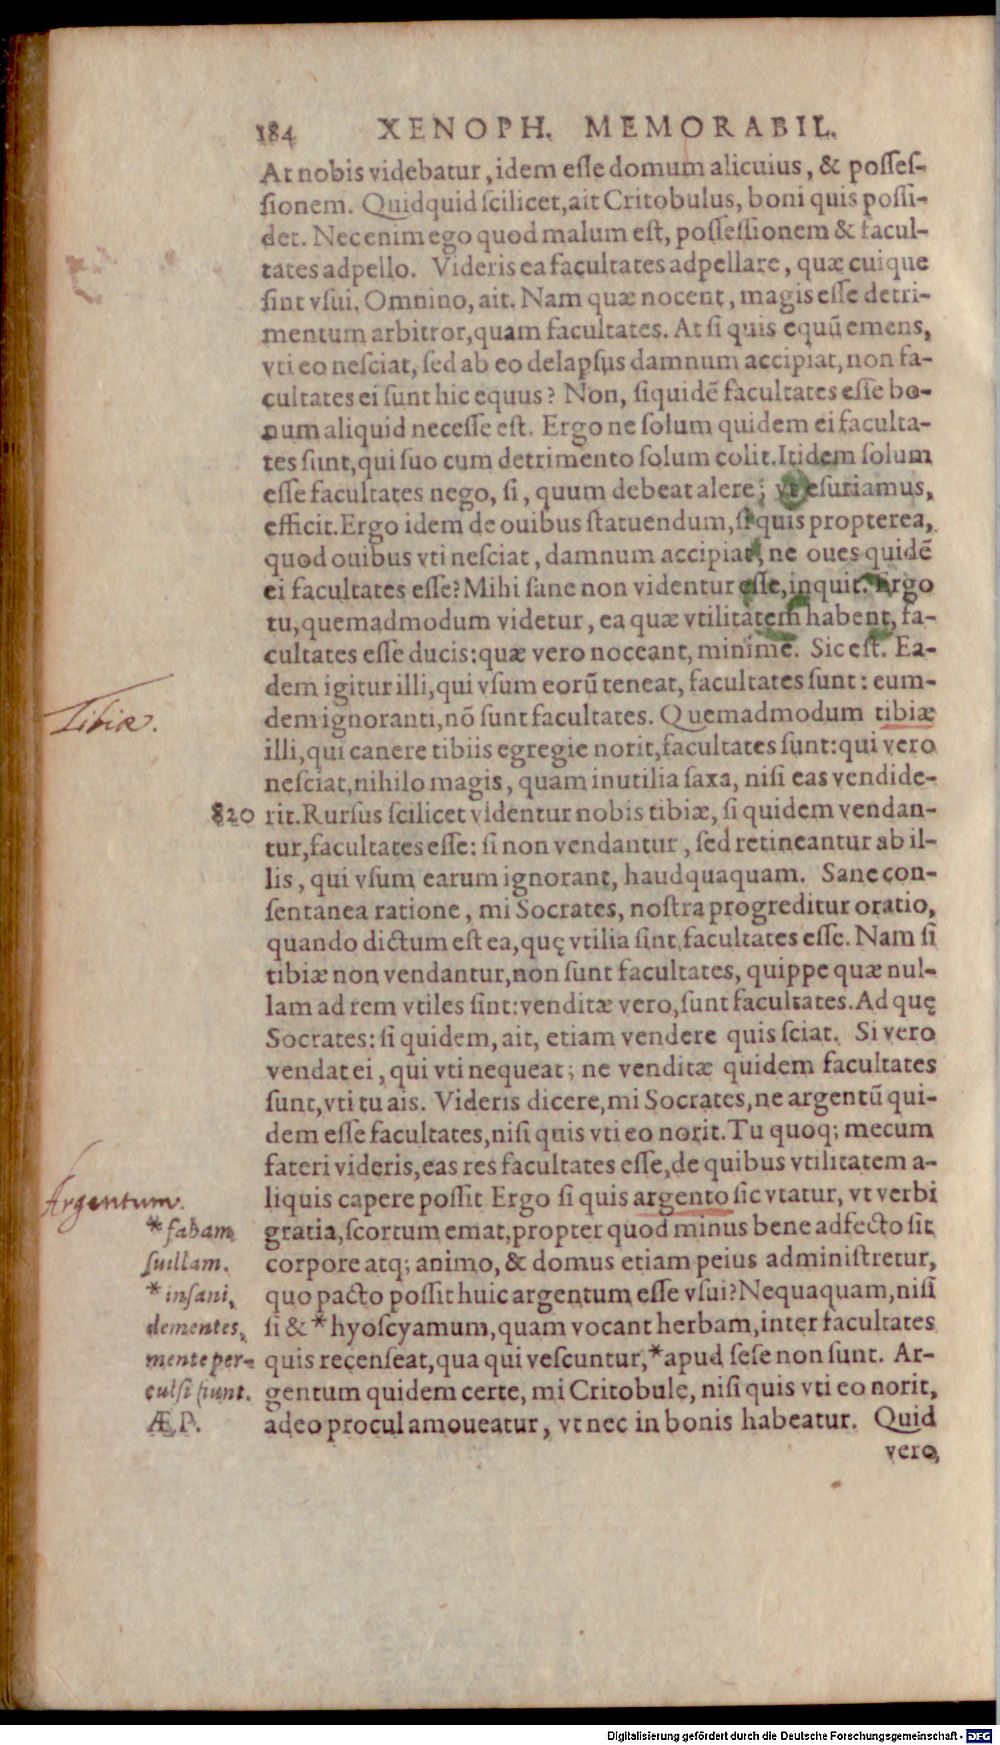 184 XENOPH. MEMORABIL.
At nobis videbatur, idem eſſe domum alicuius, & poſſeſ-
ſionem. Quidquid ſcilicet, ait Critobulus, boni quis poſſi-
det. Nec enim ego quod malum eſt, poſſeſſionem & facul-
tates adpello. Videris ea facultates adpellare, quæ cuique
ſint vſui. Omnino, ait. Nam quæ nocent, magis eſſe detri-
mentum arbitror, quam facultates. At ſi quis equũ emens,
vti eo neſciat, ſed ab eo delapſus damnum accipiat, non fa-
cultates ei ſunt hic equus? Non, ſiquidẽ facultates eſſe bo-
num aliquid neceſſe eſt. Ergo ne ſolum quidem ei faculta-
tes ſunt, qui ſuo cum detrimento ſolum colit. Itidem ſolum
eſſe facultates nego, ſi, quum debeat alere; vt eſuriamus,
efficit. Ergo idem de ouibus ſtatuendum, ſi quis propterea,
quod ouibus vti neſciat, damnum accipiat, ne oues quidẽ
ei facultates eſſe? Mihi ſane non videntur eſſe, inquit. Ergo
tu, quemadmodum videtur, ea quæ vtilitatem habent, fa-
cultates eſſe ducis: quæ vero noceant, minime. Sic eſt. Ea-
dem igitur illi, qui vſum eorũ teneat, facultates ſunt: eum-
Tibiæ.
dem ignoranti, nõ ſunt facultates. Quemadmodum tibiæ
illi, qui canere tibiis egregie norit, facultates ſunt: qui vero
neſciat, nihilo magis, quam inutilia ſaxa, niſi eas vendide-
820 rit. Rurſus ſcilicet videntur nobis tibiæ, ſi quidem vendan-
tur, facultates eſſe: ſi non vendantur, ſed retineantur ab il-
lis, qui vſum earum ignorant, haudquaquam. Sane con-
ſentanea ratione, mi Socrates, noſtra progreditur oratio,
quando dictum eſt ea, quę vtilia ſint, facultates eſſe. Nam ſi
tibiæ non vendantur, non ſunt facultates, quippe quæ nul-
lam ad rem vtiles ſint: venditæ vero, ſunt facultates. Ad quę
Socrates: ſi quidem, ait, etiam vendere quis ſciat. Si vero
vendat ei, qui vti nequeat; ne venditæ quidem facultates
ſunt, vti tu ais. Videris dicere, mi Socrates, ne argentũ qui-
dem eſſe facultates, niſi quis vti eo norit. Tu quoq; mecum
fateri videris, eas res facultates eſſe, de quibus vtilitatem a-
Argentum.
liquis capere poſſit Ergo ſi quis argento ſic vtatur, vt verbi
gratia, ſcortum emat, propter quod minus bene adfecto ſit
corpore atq; animo, & domus etiam peius adminiſtretur,
quo pacto poſſit huic argentum eſſe vſui? Nequaquam, niſi
ſi & * hyoſcyamum, quam vocant herbam, inter facultates
quis recenſeat, qua qui veſcuntur, * apud ſeſe non ſunt. Ar-
gentum quidem certe, mi Critobule, niſi quis vti eo norit,
adeo procul amoueatur, vt nec in bonis habeatur. Quid
vero,
* fabam
ſuillam.
* inſani,
dementes,
mente per-
culſi ſiunt.
Æ.P.
Digitalisierung gefördert durch die Deutsche Forschungsgemeinschaft - DFG